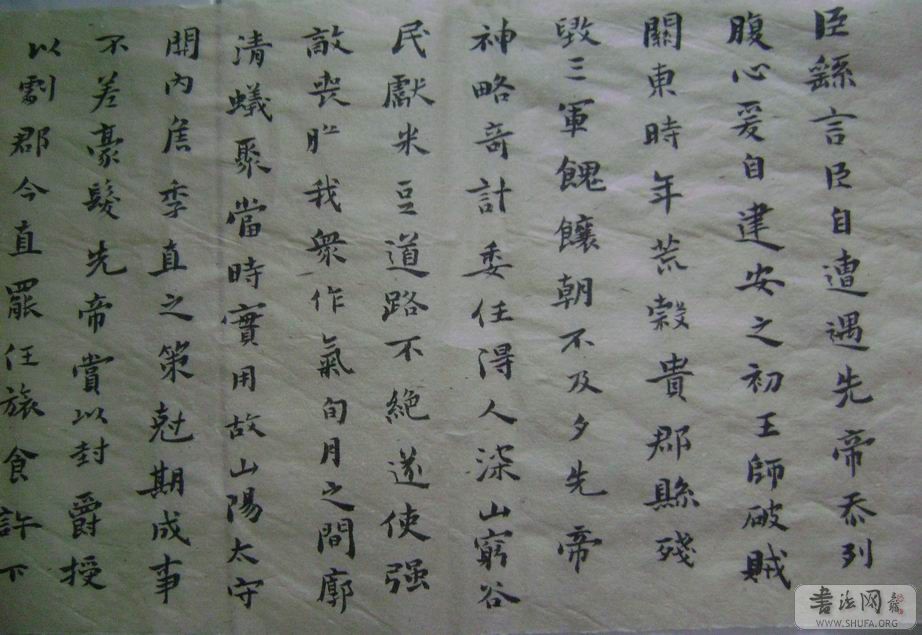 臣繇言臣自遭遇先帝忝列
腹心爰自建安之初王師破賊
關東時年荒穀貴郡縣殘
毀三軍餽饟朝不及夕先帝
神略奇計委任得人深山窮谷
民獻米豆道路不絕遂使强
敵喪膽我衆作氣旬月之間廓
清蟻聚當時實用故山陽太守
關內侯季直之策尅期成事
不差豪髮先帝賞以封爵授
以劇郡今直罷任旅食許下
書法网
WWW.SHUFA.ORG